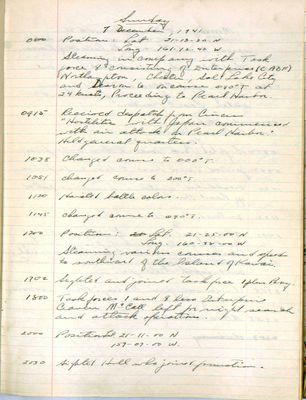 Sunday
7 December, 1941
0000 Position: Lat 21-13-30 N
Long 161-12-40 W
Steaming in company with Task
force 8 consisting of Enterprise (CABF)
Northampton, Chester, Salt Lake City
and on course 090°T at
24 knots, Proceeding to Pearl Harbor
0915 Received dispatch from Cincus
"Hostilities with Japan commenced
with air attack on Pearl Harbor."
Held general quarters.
1038 Changed course to 000°T.
1051 Changed course to 200°T.
1120 Hoisted battle colors.
1145 Changed course to 090°T.
1200 Position: Lat. 21-25-00 N
Long. 160-38-00 W
Steaming various courses and speeds
to southward of the Island of Kawai.
1702 Sighted and joined Task force
1800 Task forces 1 and 8 less Enterprise
left for night search
and attack operation.
2000 Position: 21-11-00 N
159-07-00 W.
2030 Sighted Hull who joined formation.